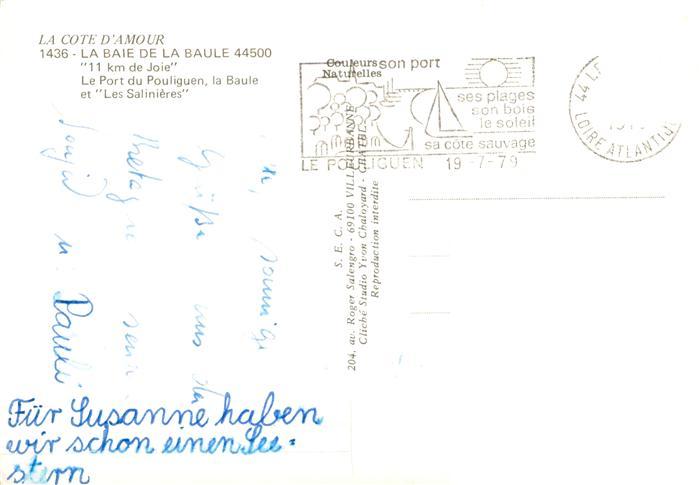 LA COTE D'AMOUR
1436 - LA BAIE DE LA BAULE 44500
"11 km de Joie"
Le Port du Pouliguen, la Baule
et "Les Salinières"
Couleurs
Naturelles
son port
ses plages
son bois
le soleil
sa côte sauvage
LE POULIGUEN 19-7-79
44 L
LOIRE ATLANTIQUE
S. E. C. A.
204, av. Roger Salengro - 69100 VILLEURBANNE
Cliché Studio Yvon Chaloyard - CHATEL
Reproduction interdite
sonnige
Grüße aus der
Bretagne
u. Pauli
Für Susanne haben
wir schon einen See=
stern